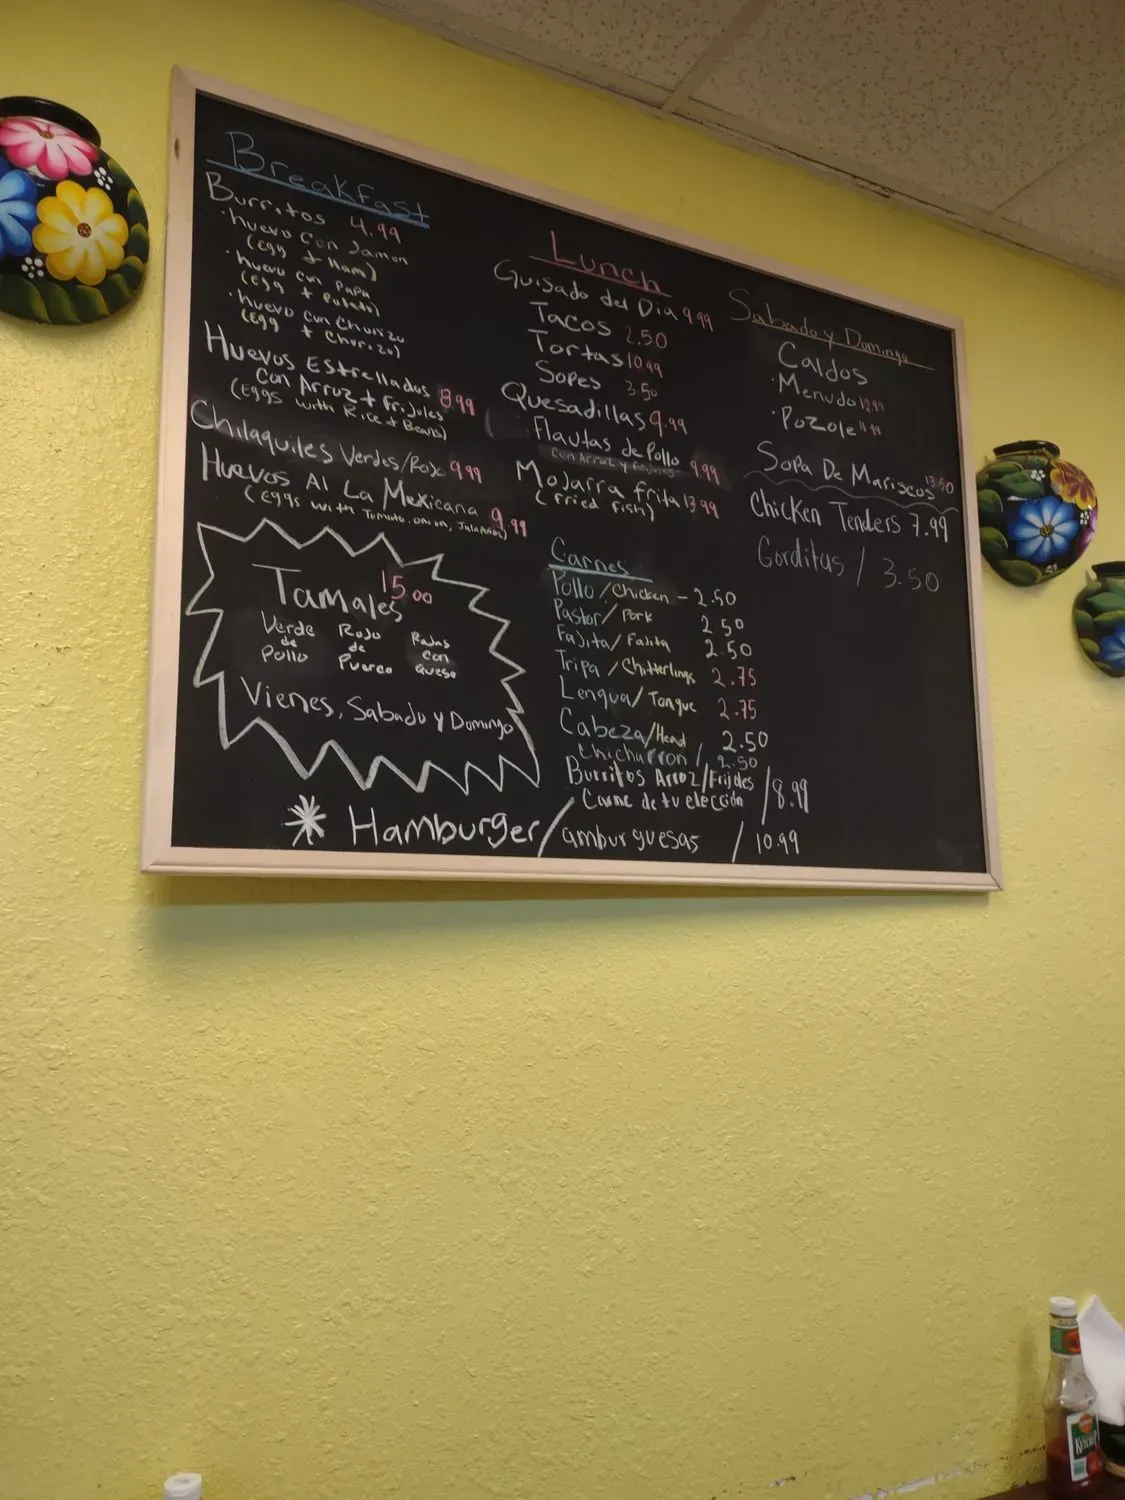 Breakfast
Burritos 4.99
· huevo con Jamon
(Egg + Ham)
· huevo con Papa
(Egg + Potato)
· huevo con Chorizo
(Egg + Chorizo)
Huevos Estrellados
con Arroz + Frijoles 8.99
(EGGS with Rice + Beans)
Chilaquiles Verdes/Rojo 9.99
Huevos Al La Mexicana 9.99
(EGGS with Tomato, onion, Jalapeños)
Tamales 15.00
Verde de Pollo
Rojo de Puerco
Rajas con Queso
Vienes, Sabado y Domingo
Lunch
Guisado del Dia 9.99
Tacos 2.50
Tortas 10.99
Sopes 3.50
Quesadillas 9.99
Flautas de Pollo 9.99
con Arroz y Frijoles
Mojarra frita 13.99
(fried fish)
Carnes
Pollo / Chicken - 2.50
Pastor / Pork 2.50
Fajita / Fajita 2.50
Tripa / Chitterlings 2.75
Lengua / Tongue 2.75
Cabeza / Head 2.50
Chicharron / 2.50
Burritos Arroz/Frijoles
Carne de tu elección / 8.99
* Hamburger / amburguesas / 10.99
Sabado y Domingo
Caldos
· Menudo 12.99
· Pozole 11.99
Sopa De Mariscos 13.50
Chicken Tenders 7.99
Gorditas / 3.50
KETCHUP